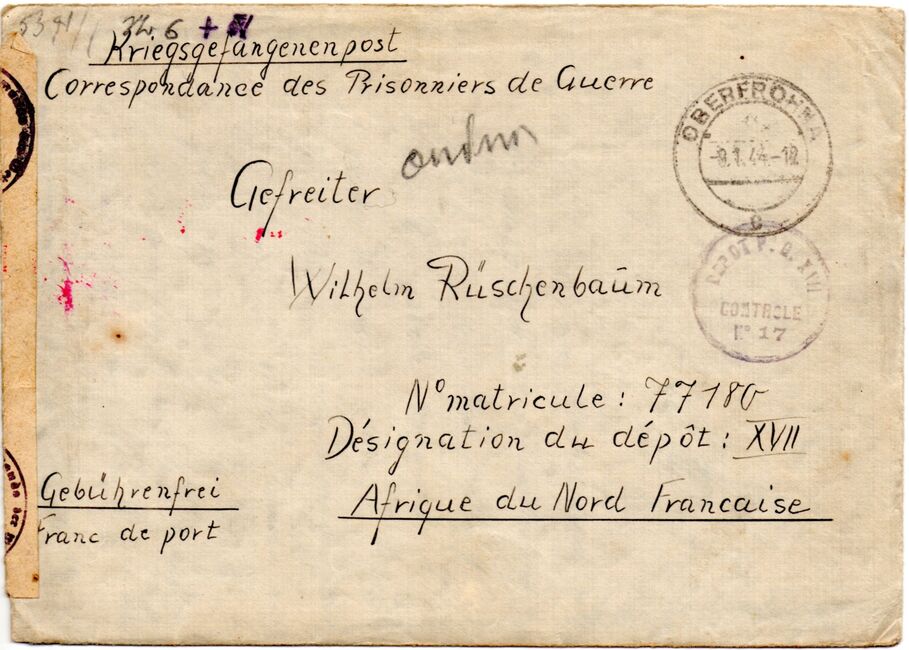 Kriegsgefangenenpost
Correspondance des Prisonniers de Guerre
OBERFROHNA
-9.1.44.-12
c
Gefreiter
DEPOT P. G. XVII
CONTROLE
N° 17
Wilhelm Rüschenbaum
N° matricule: 77180
Désignation du dépôt: XVII
Gebührenfrei
Afrique du Nord Francaise
Franc de port